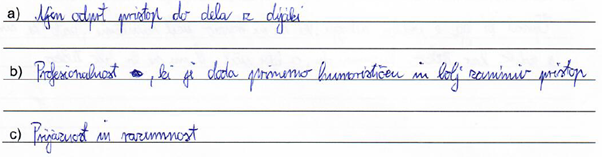 a) Njen odprt pristop do dela z dijaki
b) Profesionalnost, ki ji doda primerno humorističen in bolj zanimiv pristop
c) Prijaznost in razumnost